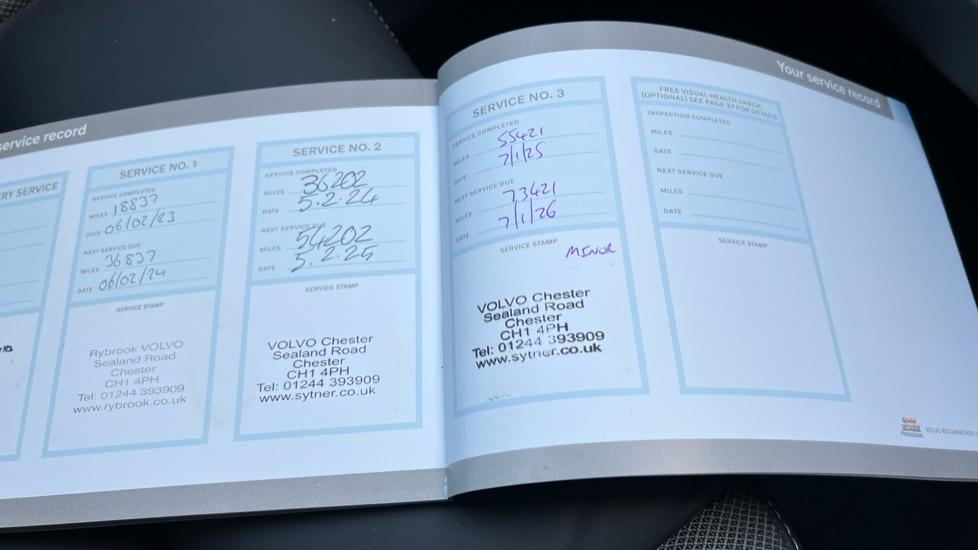 service record
RY SERVICE
SERVICE NO. 1
SERVICE COMPLETED
MILES 18837
DATE 06/02/23
NEXT SERVICE DUE
MILES 36837
DATE 06/02/24
SERVICE STAMP
Rybrook VOLVO
Sealand Road
Chester
CH1 4PH
Tel: 01244 393909
www.rybrook.co.uk
SERVICE NO. 2
SERVICE COMPLETED
MILES 36202
DATE 5.2.24
NEXT SERVICE DUE
MILES 54202
DATE 5.2.25
SERVICE STAMP
VOLVO Chester
Sealand Road
Chester
CH1 4PH
Tel: 01244 393909
www.sytner.co.uk
Your service record
SERVICE NO. 3
SERVICE COMPLETED
MILES 55421
DATE 7/1/25
NEXT SERVICE DUE
MILES 73421
DATE 7/1/26
SERVICE STAMP
MINOR
VOLVO Chester
Sealand Road
Chester
CH1 4PH
Tel: 01244 393909
www.sytner.co.uk
FREE VISUAL HEALTH CHECK
(OPTIONAL) SEE PAGE 37 FOR DETAILS
INSPECTION COMPLETED
MILES
DATE
NEXT SERVICE DUE
MILES
DATE
SERVICE STAMP
VOLVO RECOMMENDS